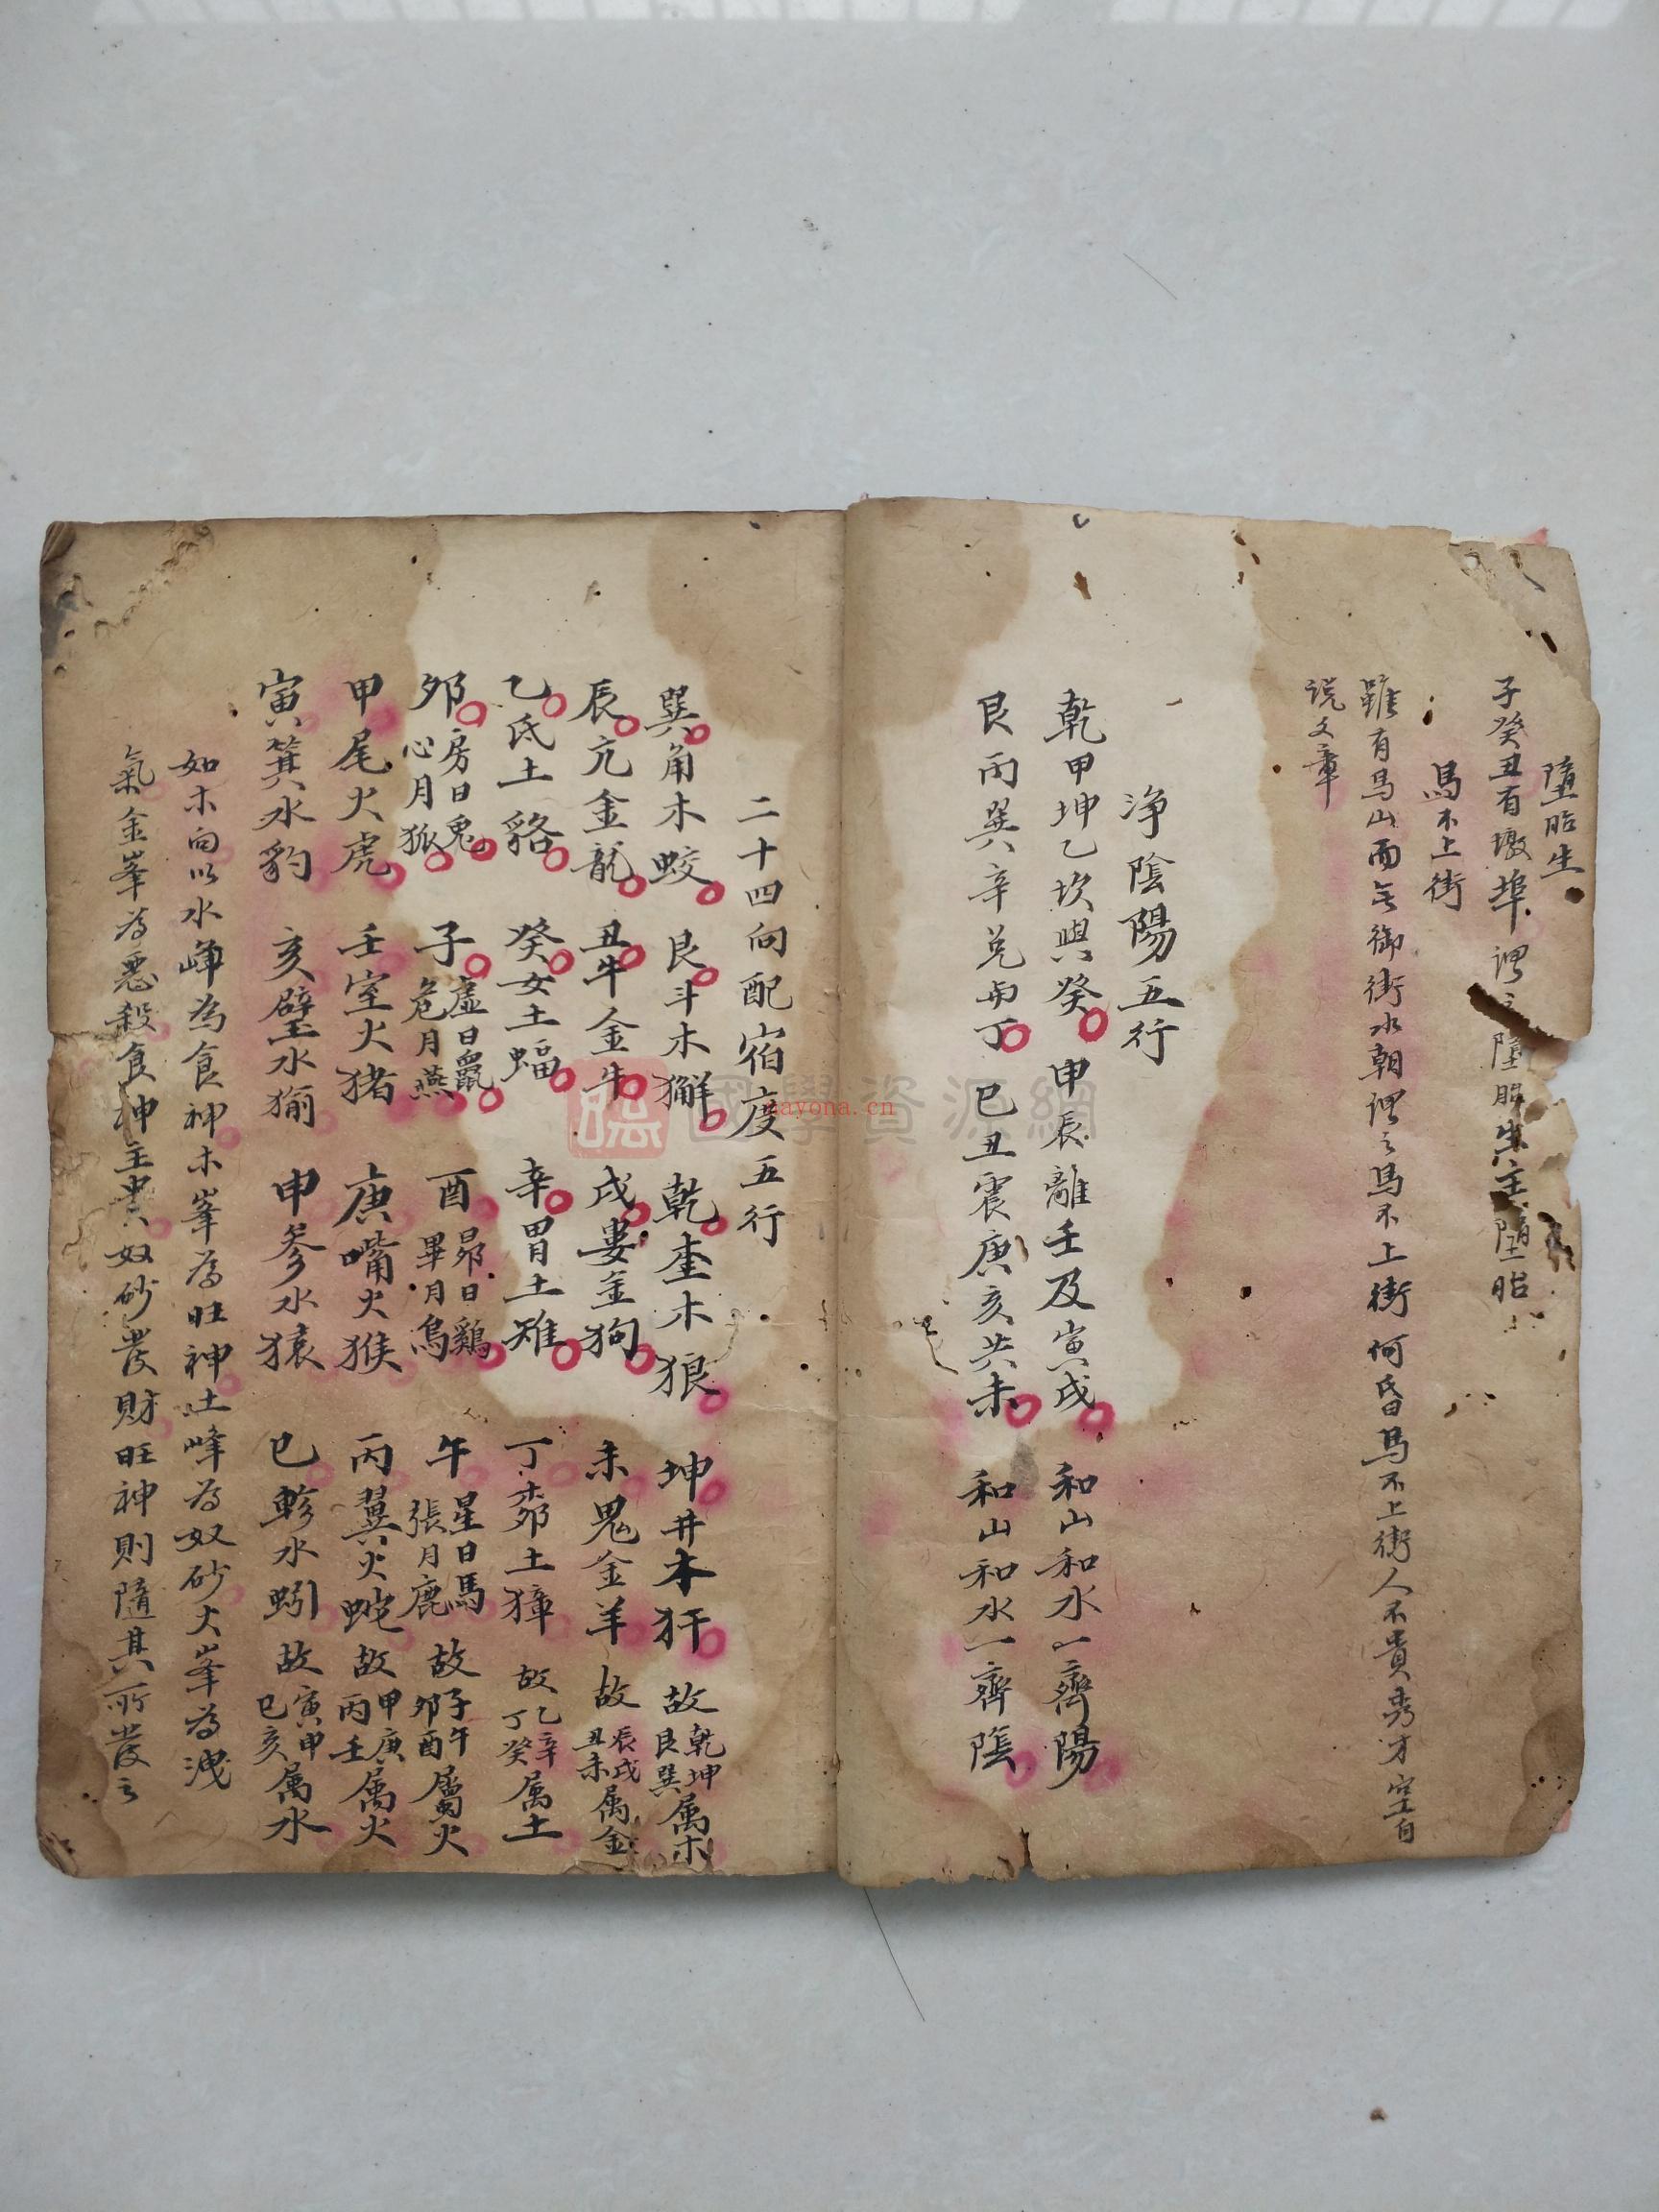 墮胎生
子癸丑有墩埠謂之墮胎生主墮胎
馬不上街
雖有馬山而無御街水朝謂之馬不上街何啻馬不上街人不貴秀才空自
說文章
淨陰陽五行
乾甲坤乙坎與癸申辰離壬及寅戌和山和水一齊陽
艮丙巽辛兌與丁巳丑震庚亥共未和山和水一齊陰
二十四向配宿度五行
巽角木蛟艮斗木獬乾奎木狼坤井木犴故乾坤艮巽属木
辰亢金龍丑牛金牛戌婁金狗未鬼金羊故辰戌丑未属金
乙氐土貉癸女土蝠辛胃土雉丁柳土獐故乙辛丁癸属土
卯房日兔心月狐子虛日鼠危月燕酉昴日鷄畢月烏午星日馬張月鹿故子午卯酉屬火
甲尾火虎壬室火猪庚嘴火猴丙翼火蛇故甲庚丙壬属火
寅箕水豹亥壁水㺄申參水猿巳軫水蚓故寅申巳亥属水
如木向以水峰為食神木峯為旺神土峰為奴砂火峯為洩
氣金峯為惡殺食神主貴奴砂發財旺神則隨其所發之
國學資源網
nayona.cn